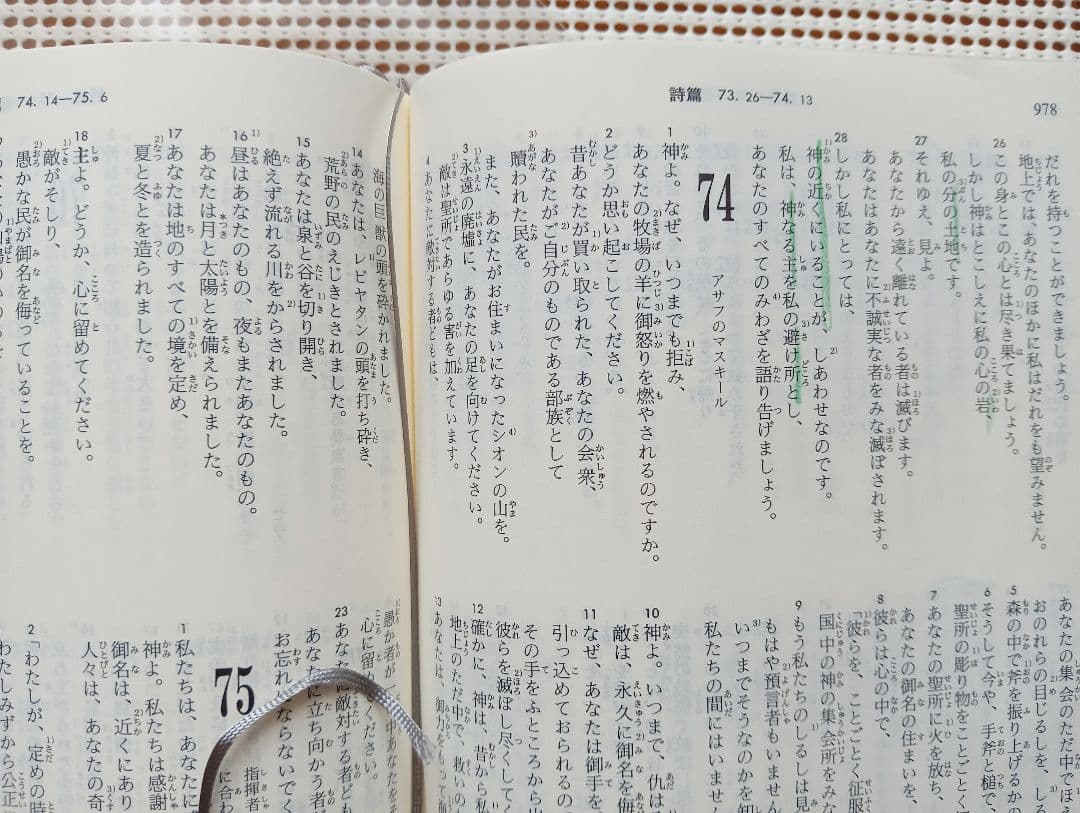 詩篇 73.26—74.13
978
だれを持つことができましょう。
地上では、あなたのほかに私はだれをも望みません。
26 この身とこの心とは尽き果てましょう。
しかし神はとこしえに私の心の岩、
私の分の土地です。
27 それゆえ、見よ。
あなたから遠く離れている者は滅びます。
あなたはあなたに不誠実な者をみな滅ぼされます。
28 しかし私にとっては、
神の近くにいることが、しあわせなのです。
私は、神なる主を私の避け所とし、
あなたのすべてのみわざを語り告げましょう。
74
アサフのマスキール
1 神よ。なぜ、いつまでも拒み、
あなたの牧場の羊に御怒りを燃やされるのですか。
2 どうか思い起こしてください。
昔あなたが買い取られた、あなたの会衆、
あなたがご自分のものである部族として
贖われた民を。
また、あなたがお住まいになったシオンの山を。
3 永遠の廃墟に、あなたの足を向けてください。
敵は聖所であらゆる害を加えています。
4 あなたに敵対する者どもは、
あなたの集会のただ中でほえ
おのれらの目じるしを、しる
5 森の中で斧を振り上げるか
6 そうして今や、手斧と槌で、
聖所の彫り物をことごとく
7 あなたの聖所に火を放ち、
あなたの御名の住まいを、
8 彼らは心の中で、
「彼らを、ことごとく征服
国中の神の集会所をみな
9 もう私たちのしるしは見
もはや預言者もいません
いつまでそうなのかを知
私たちの間にはいません
10 神よ。いつまで、仇は
敵は、永久に御名を侮
11 なぜ、あなたは御手を
引っ込めておられるの
その手をふところから出
彼らを滅ぼし尽くしてく
12 確かに、神は、昔から私
地上のただ中で、救いの
13 あなたは、御力をもって海
74.14—75.6
海の巨獣の頭を砕かれました。
14 あなたは、レビヤタンの頭を打ち砕き、
荒野の民のえじきとされました。
15 あなたは泉と谷を切り開き、
絶えず流れる川をからされました。
16 昼はあなたのもの、夜もまたあなたのもの。
あなたは月と太陽とを備えられました。
17 あなたは地のすべての境を定め、
夏と冬とを造られました。
18 主よ。どうか、心に留めてください。
敵がそしり、
愚かな民が御名を侮っていることを。
愚か者が
心に留めてください。
23 あなたに敵対する者ども
お忘れにならないでく
あなたに立ち向かう者
75
指揮者
に合わ
1 私たちは、あなたに
神よ。私たちは感謝
御名は、近くにあり
人々は、あなたの奇
2 「わたしが、定めの時
わたしみずから公正